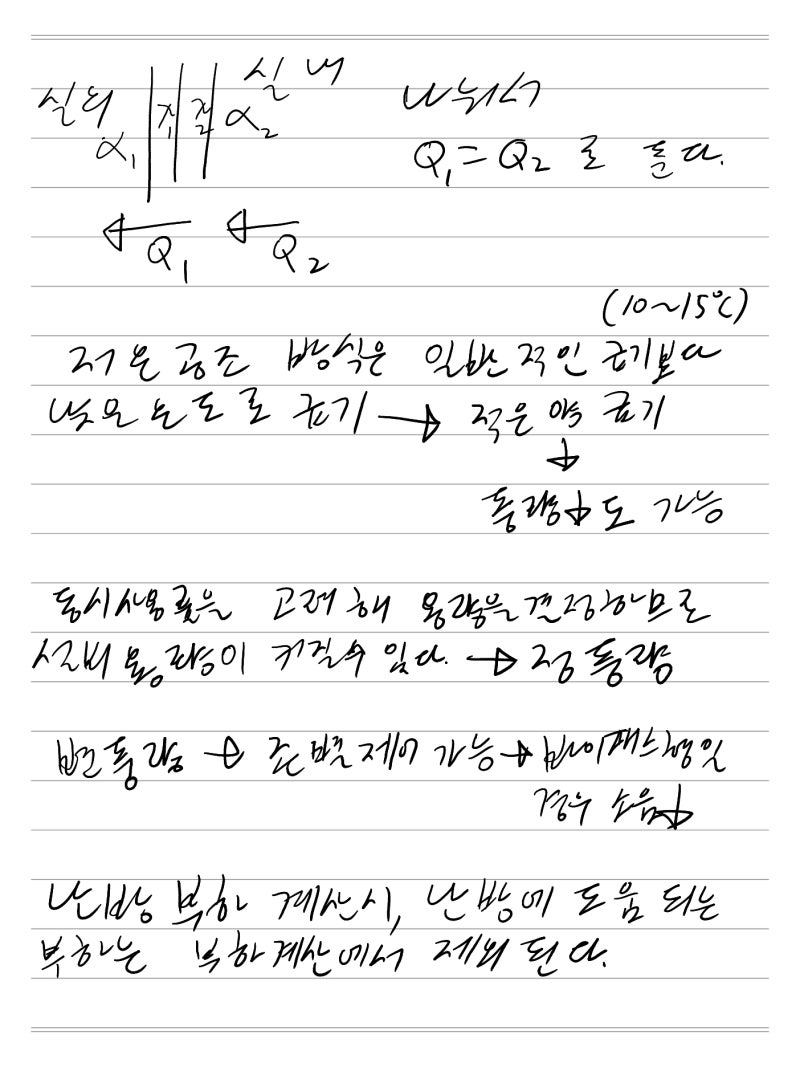 실외 α₁ 재₁ 재₂ α₂ 실내
나눠서
Q₁=Q₂ 로 둔다.
Q₁ Q₂
(10~15℃)
저온 공조 방식은 일반적인 급기보다
낮은 온도로 급기 → 적은 양 급기
↓
풍량↓도 가능
동시사용률을 고려해 용량을 결정하므로
설비용량이 커질수 있다. → 정풍량
변풍량 → 존별제어 가능 → 바이패스형일
경우 소음↓
난방 부하 계산시, 난방에 도움 되는
부하는 부하계산에서 제외 된다.